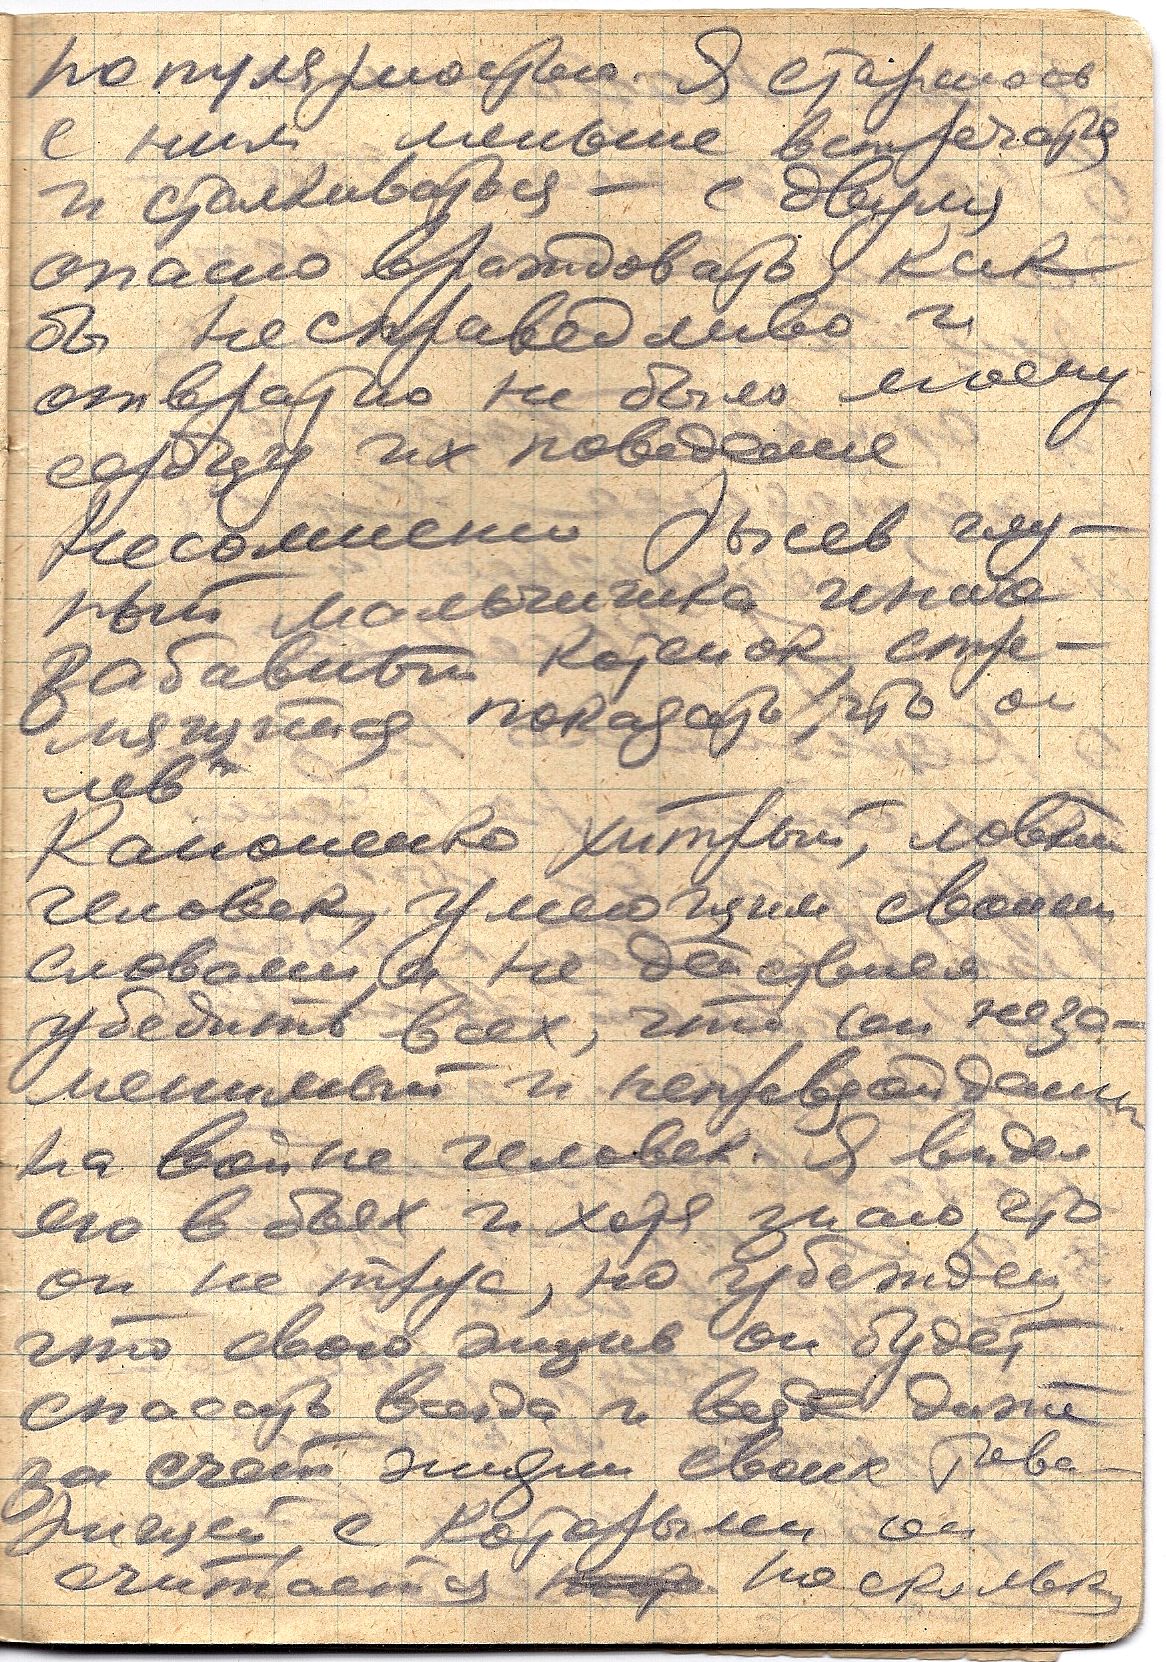 популярностью. Я стараюсь
с ним меньше встречаться
и сталкиваться – с двумя
опасно враждовать, как
бы несправедливо и
отвратно не было моему
сердцу их поведение
Несомненно Лысев глу-
пый мальчишка
забавный котенок, стре-
мящийся показать, что он
лев"
Каноненко хитрый, ловкий
человек, умеющий своими
словами, а не действием
убедить всех, что он неза-
менимый и непревзойденный
на войне человек. Я видел
его в боях и хотя знаю, что
он не трус, но убежден,
что свою жизнь он будет
спасать всегда и везде даже
за счет жизни своих това-
рищей с которыми он
считается постольку